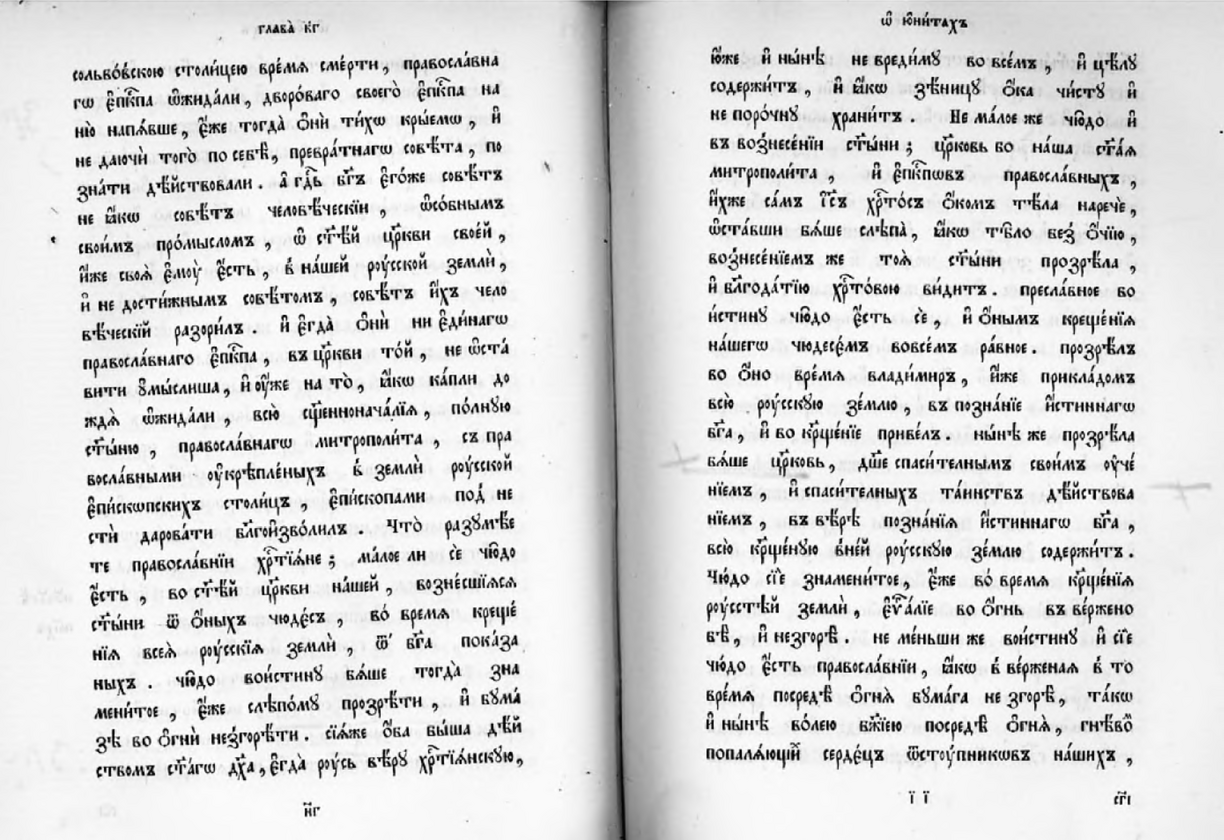 глава̀ к҃г
сольво́вскою столи́цею вре́мя сме́рти, правосла́вна
гѡ є҆пⷭ҇кпа ѡ҆жида́ли, дворо́ваго своего̀ є҆пⷭ҇кпа на
ню̀ напа́вше, є҆́же тогда̀ ѻ҆нѝ ти́хѡ кры́емѡ, и҆
не даючѝ того̀ по себѣ̀, превра́тнагѡ совѣ́та, по
зна́ти дѣ́йствовали. а҆ гдⷭ҇ь бг҃ъ є҆го́же совѣ́тъ
не ꙗ҆́кѡ совѣ́тъ человѣ́ческїи, ѡ҆со́бнымъ
свои́мъ про́мысломъ, ѡ҆ ст҃ѣ́й цр҃кви своє́й,
и҆́же своѧ̀ є҆моу̀ є҆́сть, в на́шей роу́сской землѝ,
и҆ не дости́жнымъ совѣ́томъ, совѣ́тъ и҆́хъ чело
вѣ́ческїй разори́лъ. и҆ є҆гда̀ ѻ҆нѝ ни є҆ди́нагѡ
правосла́внаго є҆пⷭ҇кпа, въ цр҃кви то́й, не ѡ҆ста́
вити ᲂу҆мы́слиша, и҆ ᲂу҆́же на то̀, ꙗ҆́кѡ ка́пли до
ждѧ̀ ѡ҆жида́ли, всю̀ сщ҃енноначáлїѧ, по́лную
ст҃ы́ню, правосла́внагѡ митрополи́та, съ пра
восла́вными ᲂу҆крѣпле́ныхъ в землѝ роу́сской
є҆пи́скѡпскихъ столи́цъ, є҆пи́скопами под не
стѝ дарова́ти бл҃гоизво́лилъ. Что̀ разумѣ́е
те правосла́внїи хрⷭ҇тїѧ́не; ма́лое ли сѐ чю́до
є҆́сть, во ст҃ѣ́й цр҃кви на́шей, возне́сшїѧсѧ
ст҃ы́ни ѿ ѻ҆́ныхъ чюде́съ, во́ время креще́
нїѧ всеѧ̀ роу́сскїѧ землѝ, ѿ бг҃а пока́за
ныхъ. чю́до вои́стину бѧ́ше тогда̀ зна
мени́тое, є҆́же слѣпо́му прозрѣ́ти, и҆ бума́
зѣ во ѻ҆гнѝ незгорѣ́ти. сїѧ́же ѻ҆́ба бы́ша дѣ́й
ствомъ ст҃а́гѡ дх҃а, є҆гда̀ роу́сь вѣ́ру хрⷭ҇тїѧ́нскую,
н҃г
ѡ҆ ю҆ни́тахъ
ю҆́же и҆ ны́нѣ не вреди́му во все́мъ, и҆ цѣ́лу
содержи́тъ, и҆ ꙗ҆́кѡ зѣ́ницу ѻ҆́ка чи́сту и҆
не поро́чну храни́тъ. Не ма́лое же чю́до и҆
въ вознесе́нїи ст҃ы́ни; цр҃ковь бо на́ша ст҃а́ѧ
митрополи́та, и҆ є҆пⷭ҇кпѡвъ правосла́вныхъ,
и҆́хже са́мъ і҆с҃ъ хрⷭ҇то́съ ѻ҆́комъ тѣ́ла нарече́,
ѡ҆ста́вши бѧ́ше слѣпа̀, ꙗ҆́кѡ тѣ́ло без ѻ҆́чїю,
вознесе́нїемъ же тоѧ̀ ст҃ы́ни прозрѣ́ла,
и҆ бл҃года́тїю хрⷭ҇то́вою ви́дитъ. пресла́вное во
и́стину чю́до є҆́сть сѐ, и҆ ѻ҆́нымъ креще́нїѧ
на́шегѡ чюдесе́мъ вовсе́мъ ра́вное. прозрѣ́лъ
во ѻ҆́но вре́мѧ влади́миръ, и҆́же прикла́домъ
всю̀ роу́сскую зе́млю, въ позна́нїе и҆́стиннагѡ
бг҃а, и҆ во кр҃ще́нїе приве́лъ. ны́нѣ же прозрѣ́ла
бѧ́ше цр҃ковь, дш҃е спаси́телнымъ свои́мъ ᲂу҆че́
нїемъ, и҆ спаси́телныхъ та́инствъ дѣ́йствова
нїемъ, въ вѣ́рѣ позна́нїѧ и҆́стиннагѡ бг҃а,
всю̀ кр҃ще́ную вне́й роу́сскую зе́млю содержи́тъ.
Чю́до сїѐ знамени́тое, є҆́же во́ время кр҃ще́нїѧ
роу́сстѣй землѝ, є҆ѵⷢ҇алїе во ѻ҆́гнь въ ве́ржено
бѣ̀, и҆ незгорѣ̀. не ме́ньши же вои́стину и҆ сїѐ
чю́до є҆́сть правосла́внїи, ꙗ҆́кѡ в ве́рженаѧ в то
вре́мѧ посредѣ̀ ѻ҆гнѧ̀ бума́га не згорѣ̀, та́кѡ
и҆ ны́нѣ во́лею бж҃їею посредѣ̀ ѻ҆гнѧ̀, гнѣ́во
попалѧ́ющїй серде́цъ ѿстоу́пникѡвъ на́шихъ,
ї ї
сг҃і